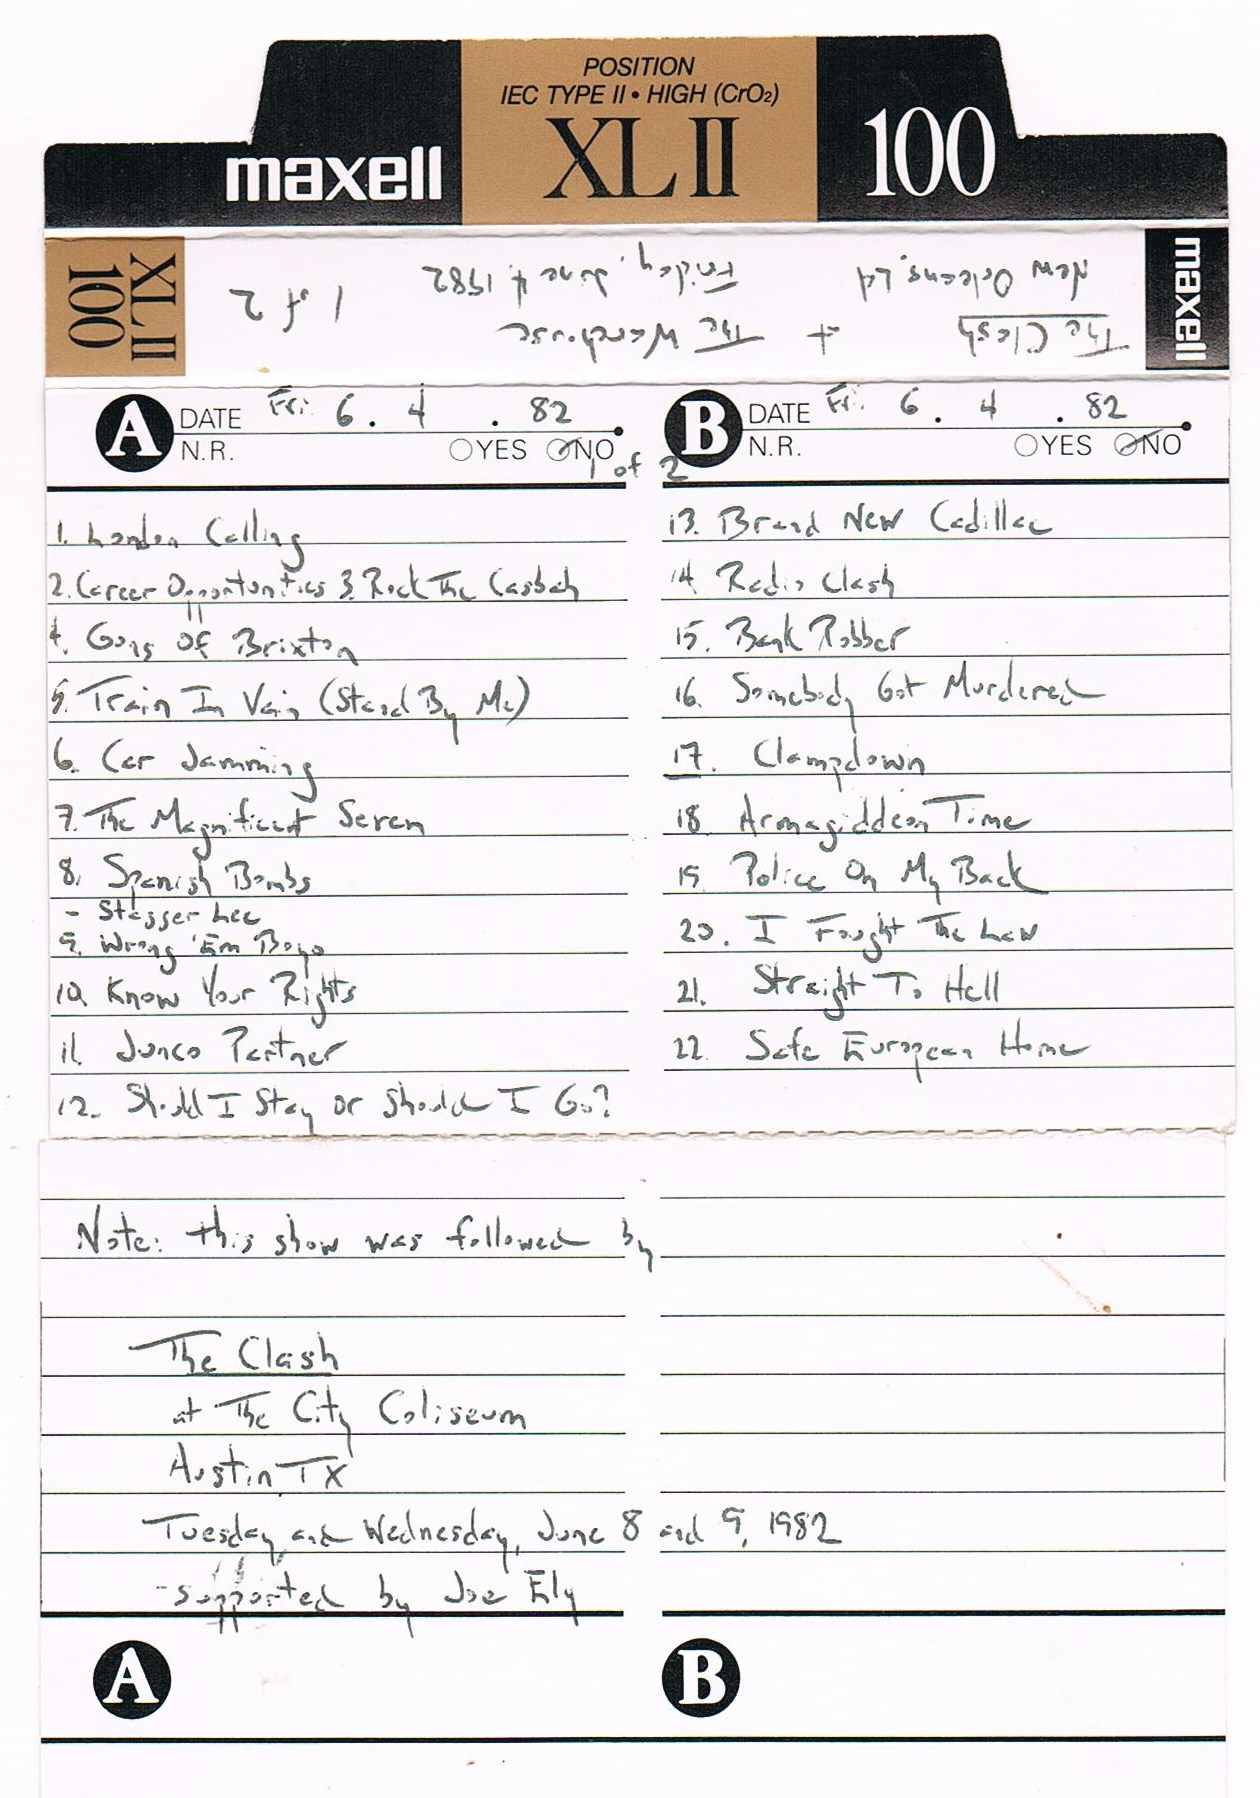 POSITION
IEC TYPE II • HIGH (CrO2)
maxell XL II 100
XL II
100
The Clash at The Warehouse
New Orleans, LA Friday, June 4, 1982 1 of 2
maxell
A DATE Fri. 6 . 4 . 82
N.R. YES NO
B DATE Fri. 6 . 4 . 82
N.R. YES NO
1 of 2
1. London Calling
2. Career Opportunities 3. Rock The Casbah
4. Guns Of Brixton
5. Train In Vain (Stand By Me)
6. Car Jamming
7. The Magnificent Seven
8. Spanish Bombs
- Stagger Lee
9. Wrong 'Em Boyo
10. Know Your Rights
11. Junco Partner
12. Should I Stay or Should I Go?
13. Brand New Cadillac
14. Radio Clash
15. Bank Robber
16. Somebody Got Murdered
17. Clampdown
18. Armagiddeon Time
19. Police On My Back
20. I Fought The Law
21. Straight To Hell
22. Safe European Home
Note: this show was followed by
The Clash
at The City Coliseum
Austin TX
Tuesday and Wednesday, June 8 and 9, 1982
-supported by Joe Ely
A B